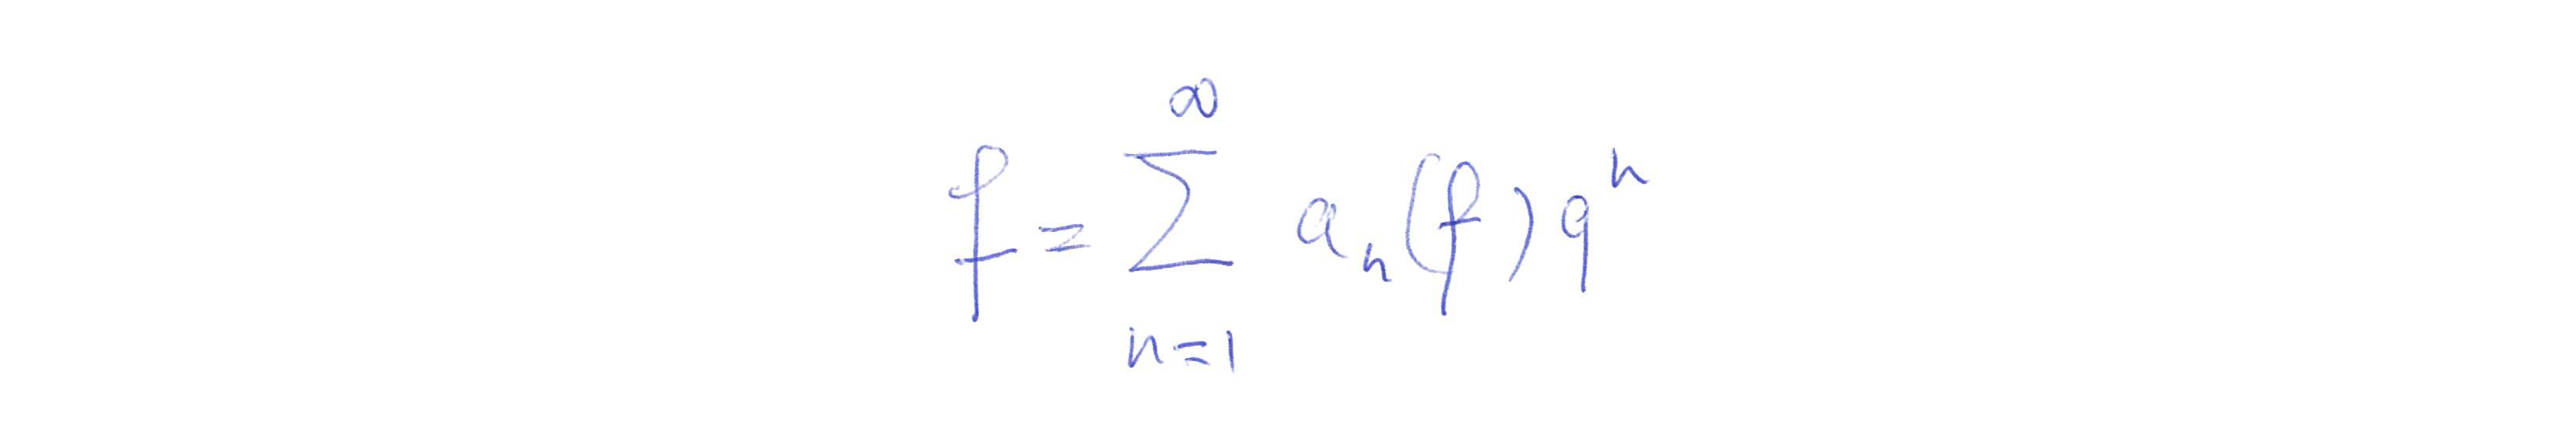 f = \sum_{n=1}^{\infty} a_n(f) q^n